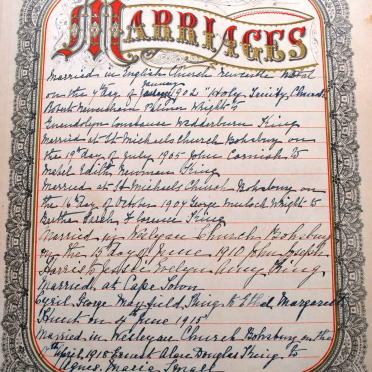 MARRIAGES
Married in English Church Newcastle Natal
on the 4 day of January 1902 "Holy Trinity Church
Robert Newenham Wright to
Gwendolyn Constance Wedderburn King
Married at St Michaels Church Boksburg on
the 19th day of July 1905 John Cornish to
Mabel Edith Newman King
Married at St Michaels Church Boksburg on
the 16 day of October 1909 George Murlock Wright to
Bertha Sarah Florence King
Married in Wesleyan Church Boksburg
on the 15 day of June 1910 John Joseph
Harris to Evelyn Amy King
Married, at Cape Town
Cyril George Mayfield King to Ethel Margaret
Blunt on 4th June 1915
Married in Wesleyan Church Boksburg on the
April 1918 Ernest Alan Douglas King to
Agnes Marie Small